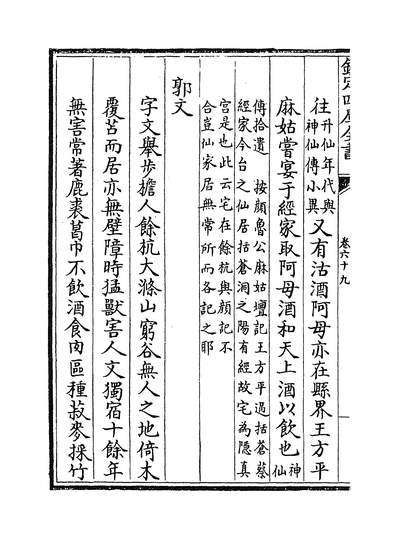 欽定四庫全書
卷六十九
往升仙年代與神仙傳小異又有沽酒阿母亦在縣界王方平
麻姑嘗宴于經家取阿母酒和天上酒以飲也神仙
傳拾遺 按顔魯公麻姑壇記王方平過括蒼蔡
經家今台之仙居括蒼洞之陽有經故宅為隱真
宫是也此云宅在餘杭與顔記不
合豈仙家居無常所而各記之耶
郭文
字文舉步擔人餘杭大滌山窮谷無人之地倚木
覆苫而居亦無壁障時猛獸害人文獨宿十餘年
無害常著鹿裘葛巾不飲酒食肉區種菽麥採竹